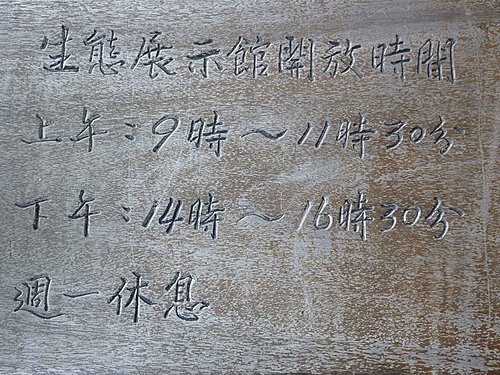 生態展示館開放時間
上午:9時～11時30分
下午:14時～16時30分
週一休息